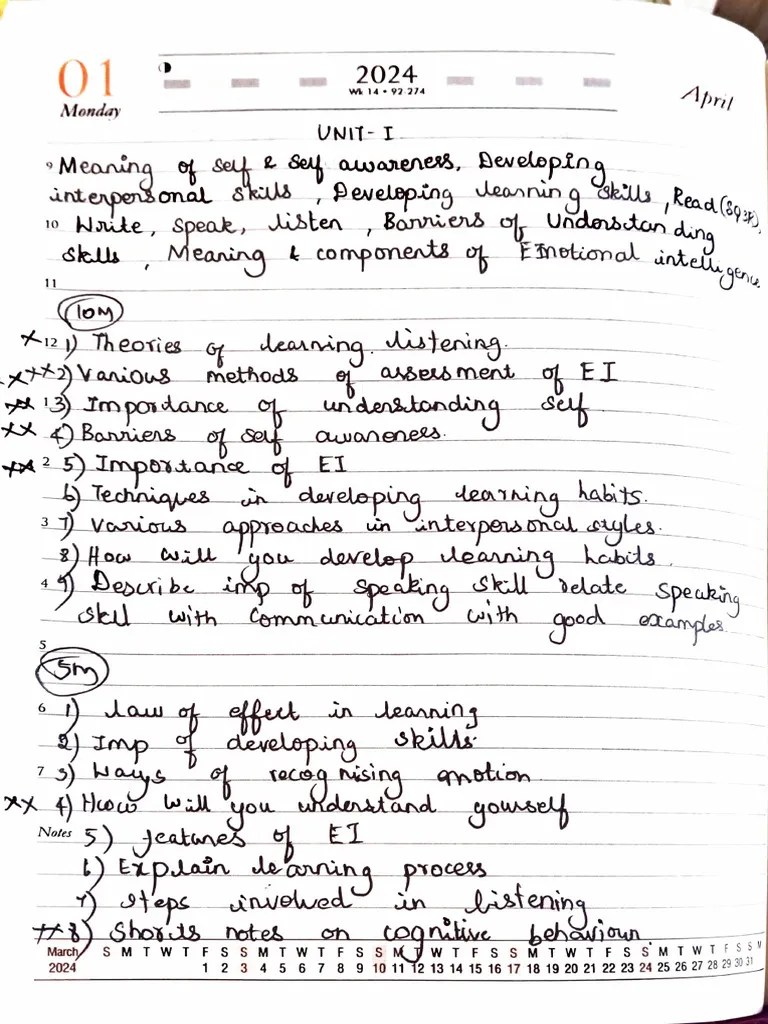 01
Monday
2024
Wk 14 • 92.274
April
UNIT- I
9 Meaning of self & self awareness, Developing
interpersonal skills , Developing learning skills , Read (SQ3R),
10 Write, speak, listen , Barriers of Understanding
skills , Meaning & components of EMotional intelligence
11
10M
x 12 1) Theories of learning listening.
xxx 2) Various methods of assessment of EI
xx 1 3) Importance of understanding self
xx 4) Barriers of self awareness.
xx 2 5) Importance of EI
6) Techniques in developing learning habits.
3 7) Various approaches in interpersonal styles.
8) How will you develop learning habits
4 9) Describe imp of speaking skill relate speaking
skill with communication with good examples
5
5m
6 1) Law of effect in learning
2) Imp of developing skills
7 3) Ways of recognising emotion
xx 4) How will you understand yourself
Notes 5) features of EI
6) Explain learning process
7) steps involved in listening
xx 8) Shorts notes on cognitive behaviour
March S M T W T F S S M T W T F S S M T W T F S S M T W T F S S M T W T F S S M
2024 1 2 3 4 5 6 7 8 9 10 11 12 13 14 15 16 17 18 19 20 21 22 23 24 25 26 27 28 29 30 31